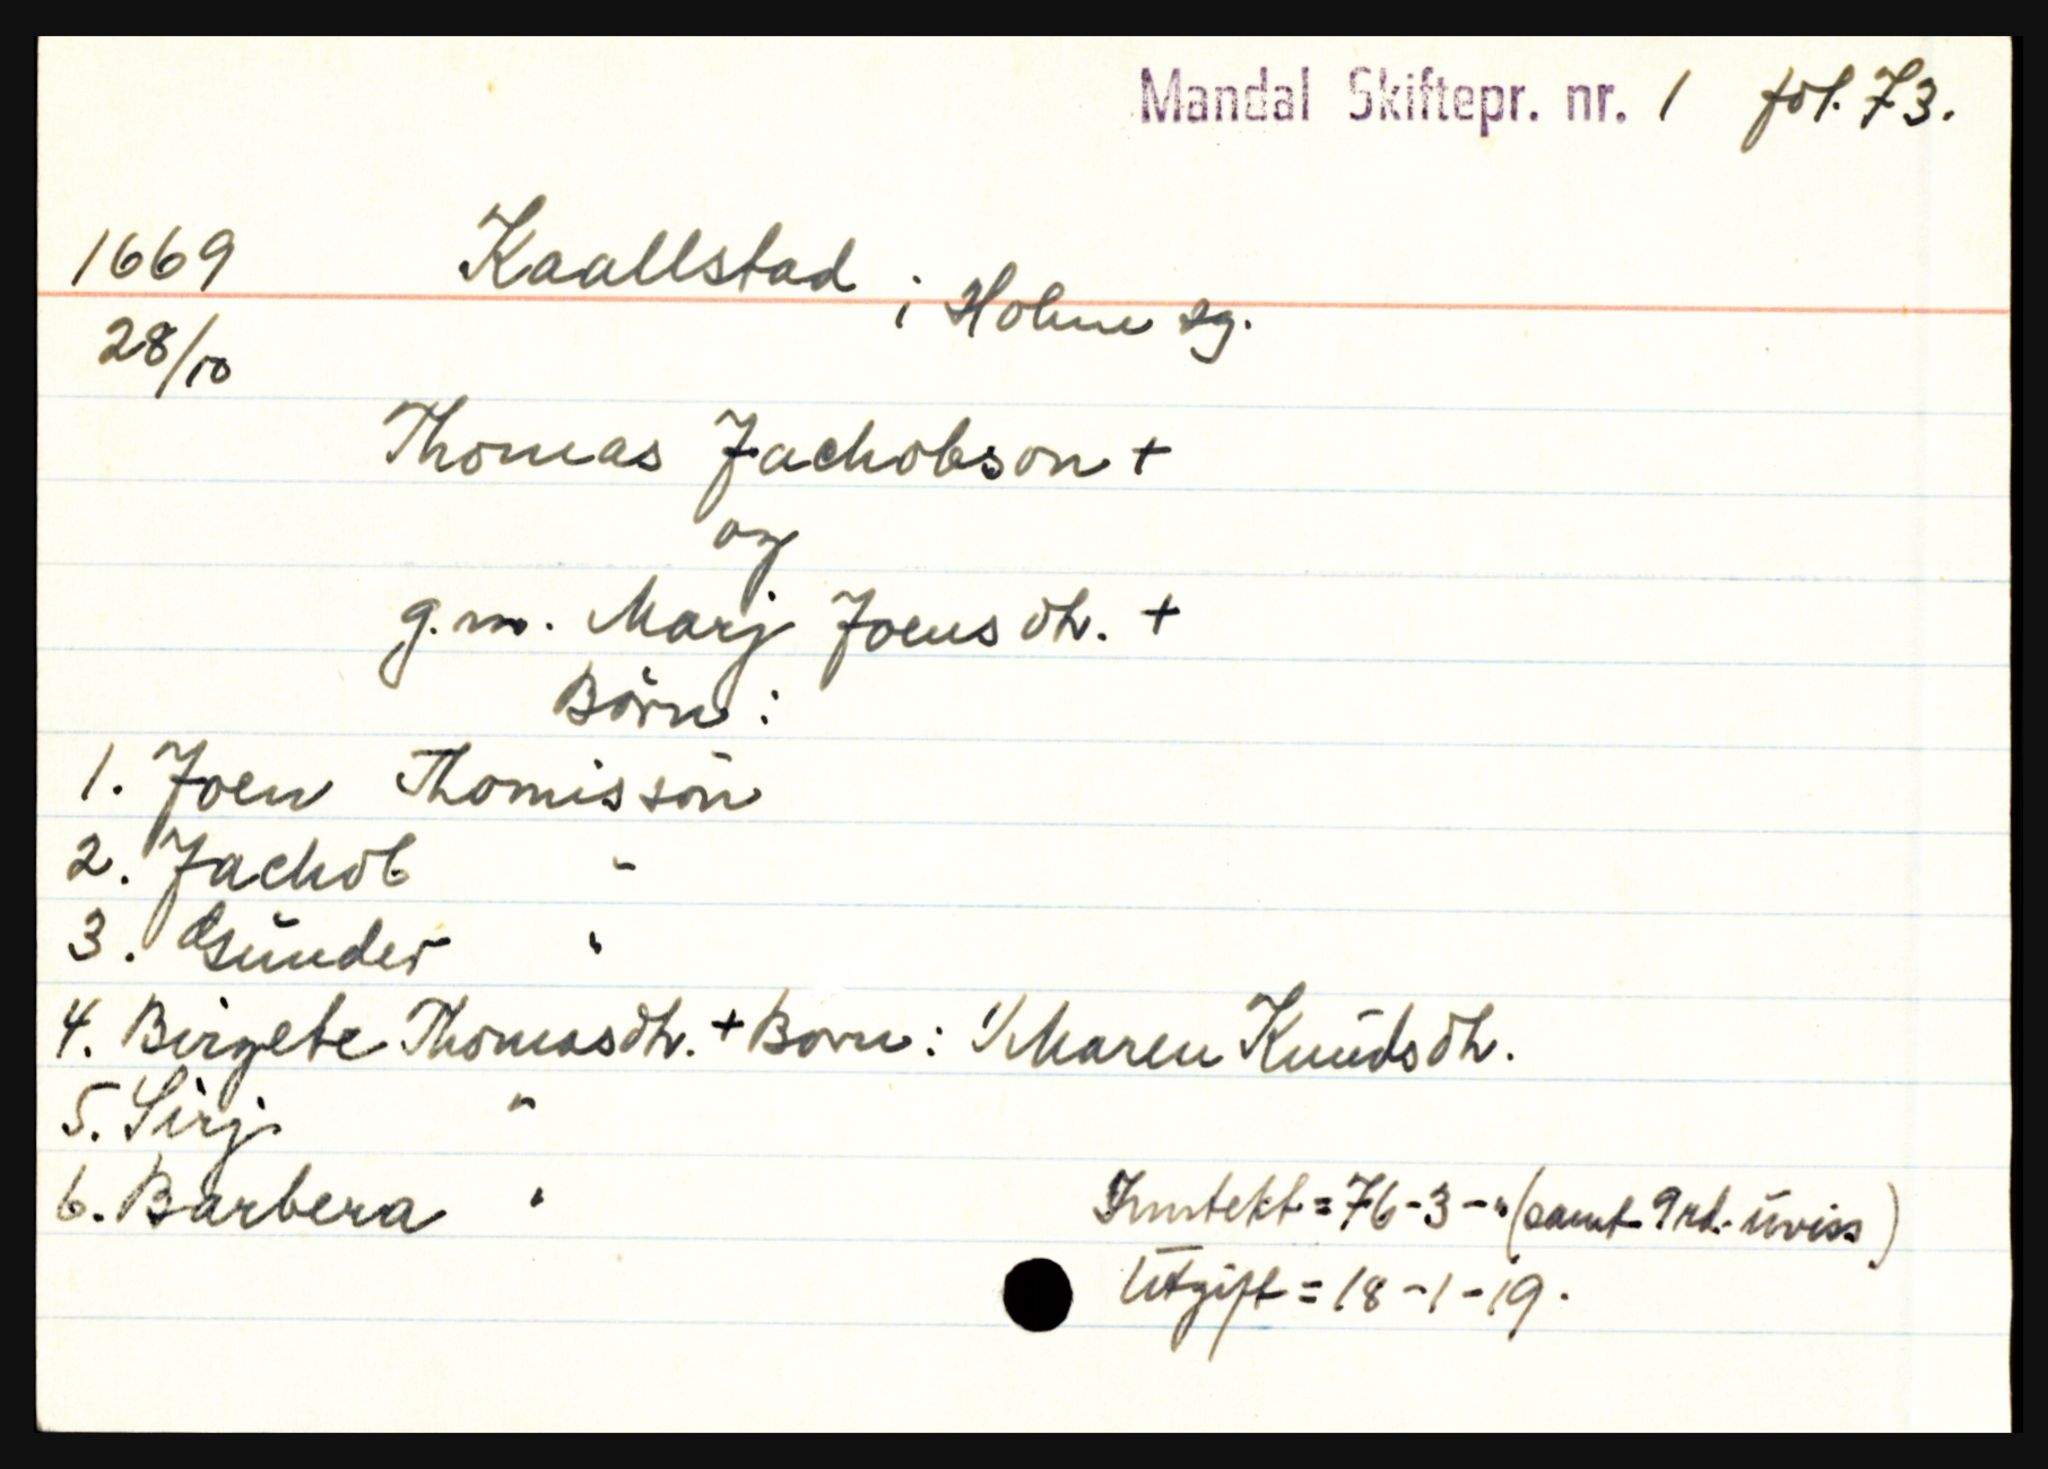 Mandal Skiftepr. nr. 1 fol. 73.
1669 Kaallstad i Holme sg.
28/10
Thomas Jachobson +
og
g.m. Marj Joensdtr. +
Børn:
1. Joen Thomissøn
2. Jachob "
3. Gŭnder "
4. Birgete Thomasdtr. + Born: 1/ Maren Knŭdsdtr.
5. Sirj "
6. Barbera "
Inntekt = 76-3-" (samt 9 rd. ŭviss)
Utgift = 18-1-19.